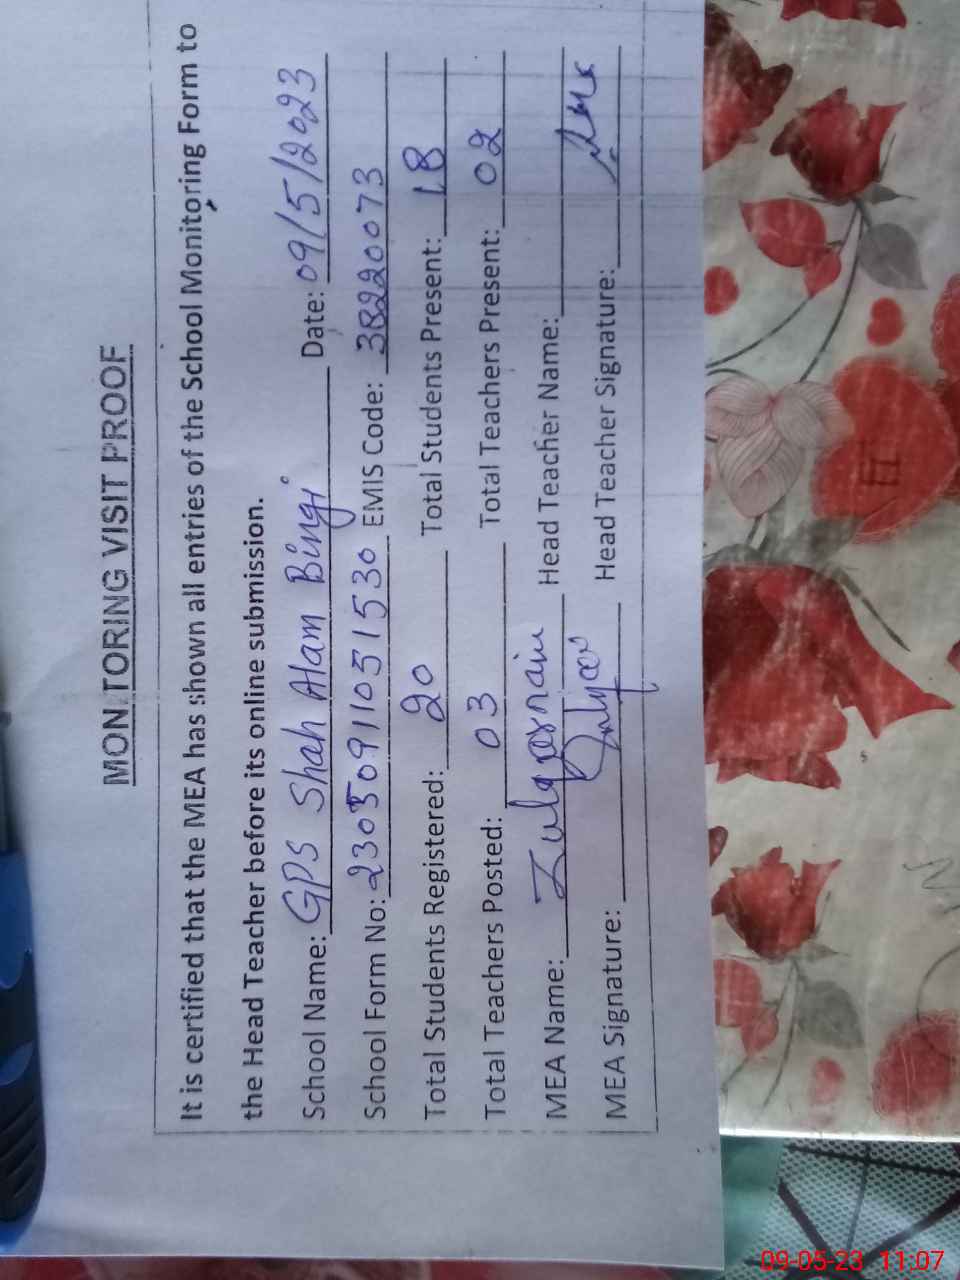 MONITORING VISIT PROOF
It is certified that the MEA has shown all entries of the School Monitoring Form to
the Head Teacher before its online submission.
School Name: GPS Shah Alam Bingi Date: 09/5/2023
School Form No: 23050911051530 EMIS Code: 38220073
Total Students Registered: 20 Total Students Present: 18
Total Teachers Posted: 03 Total Teachers Present: 02
MEA Name: Zulqarnain Head Teacher Name:
MEA Signature: Head Teacher Signature:
09-05-23 11:07